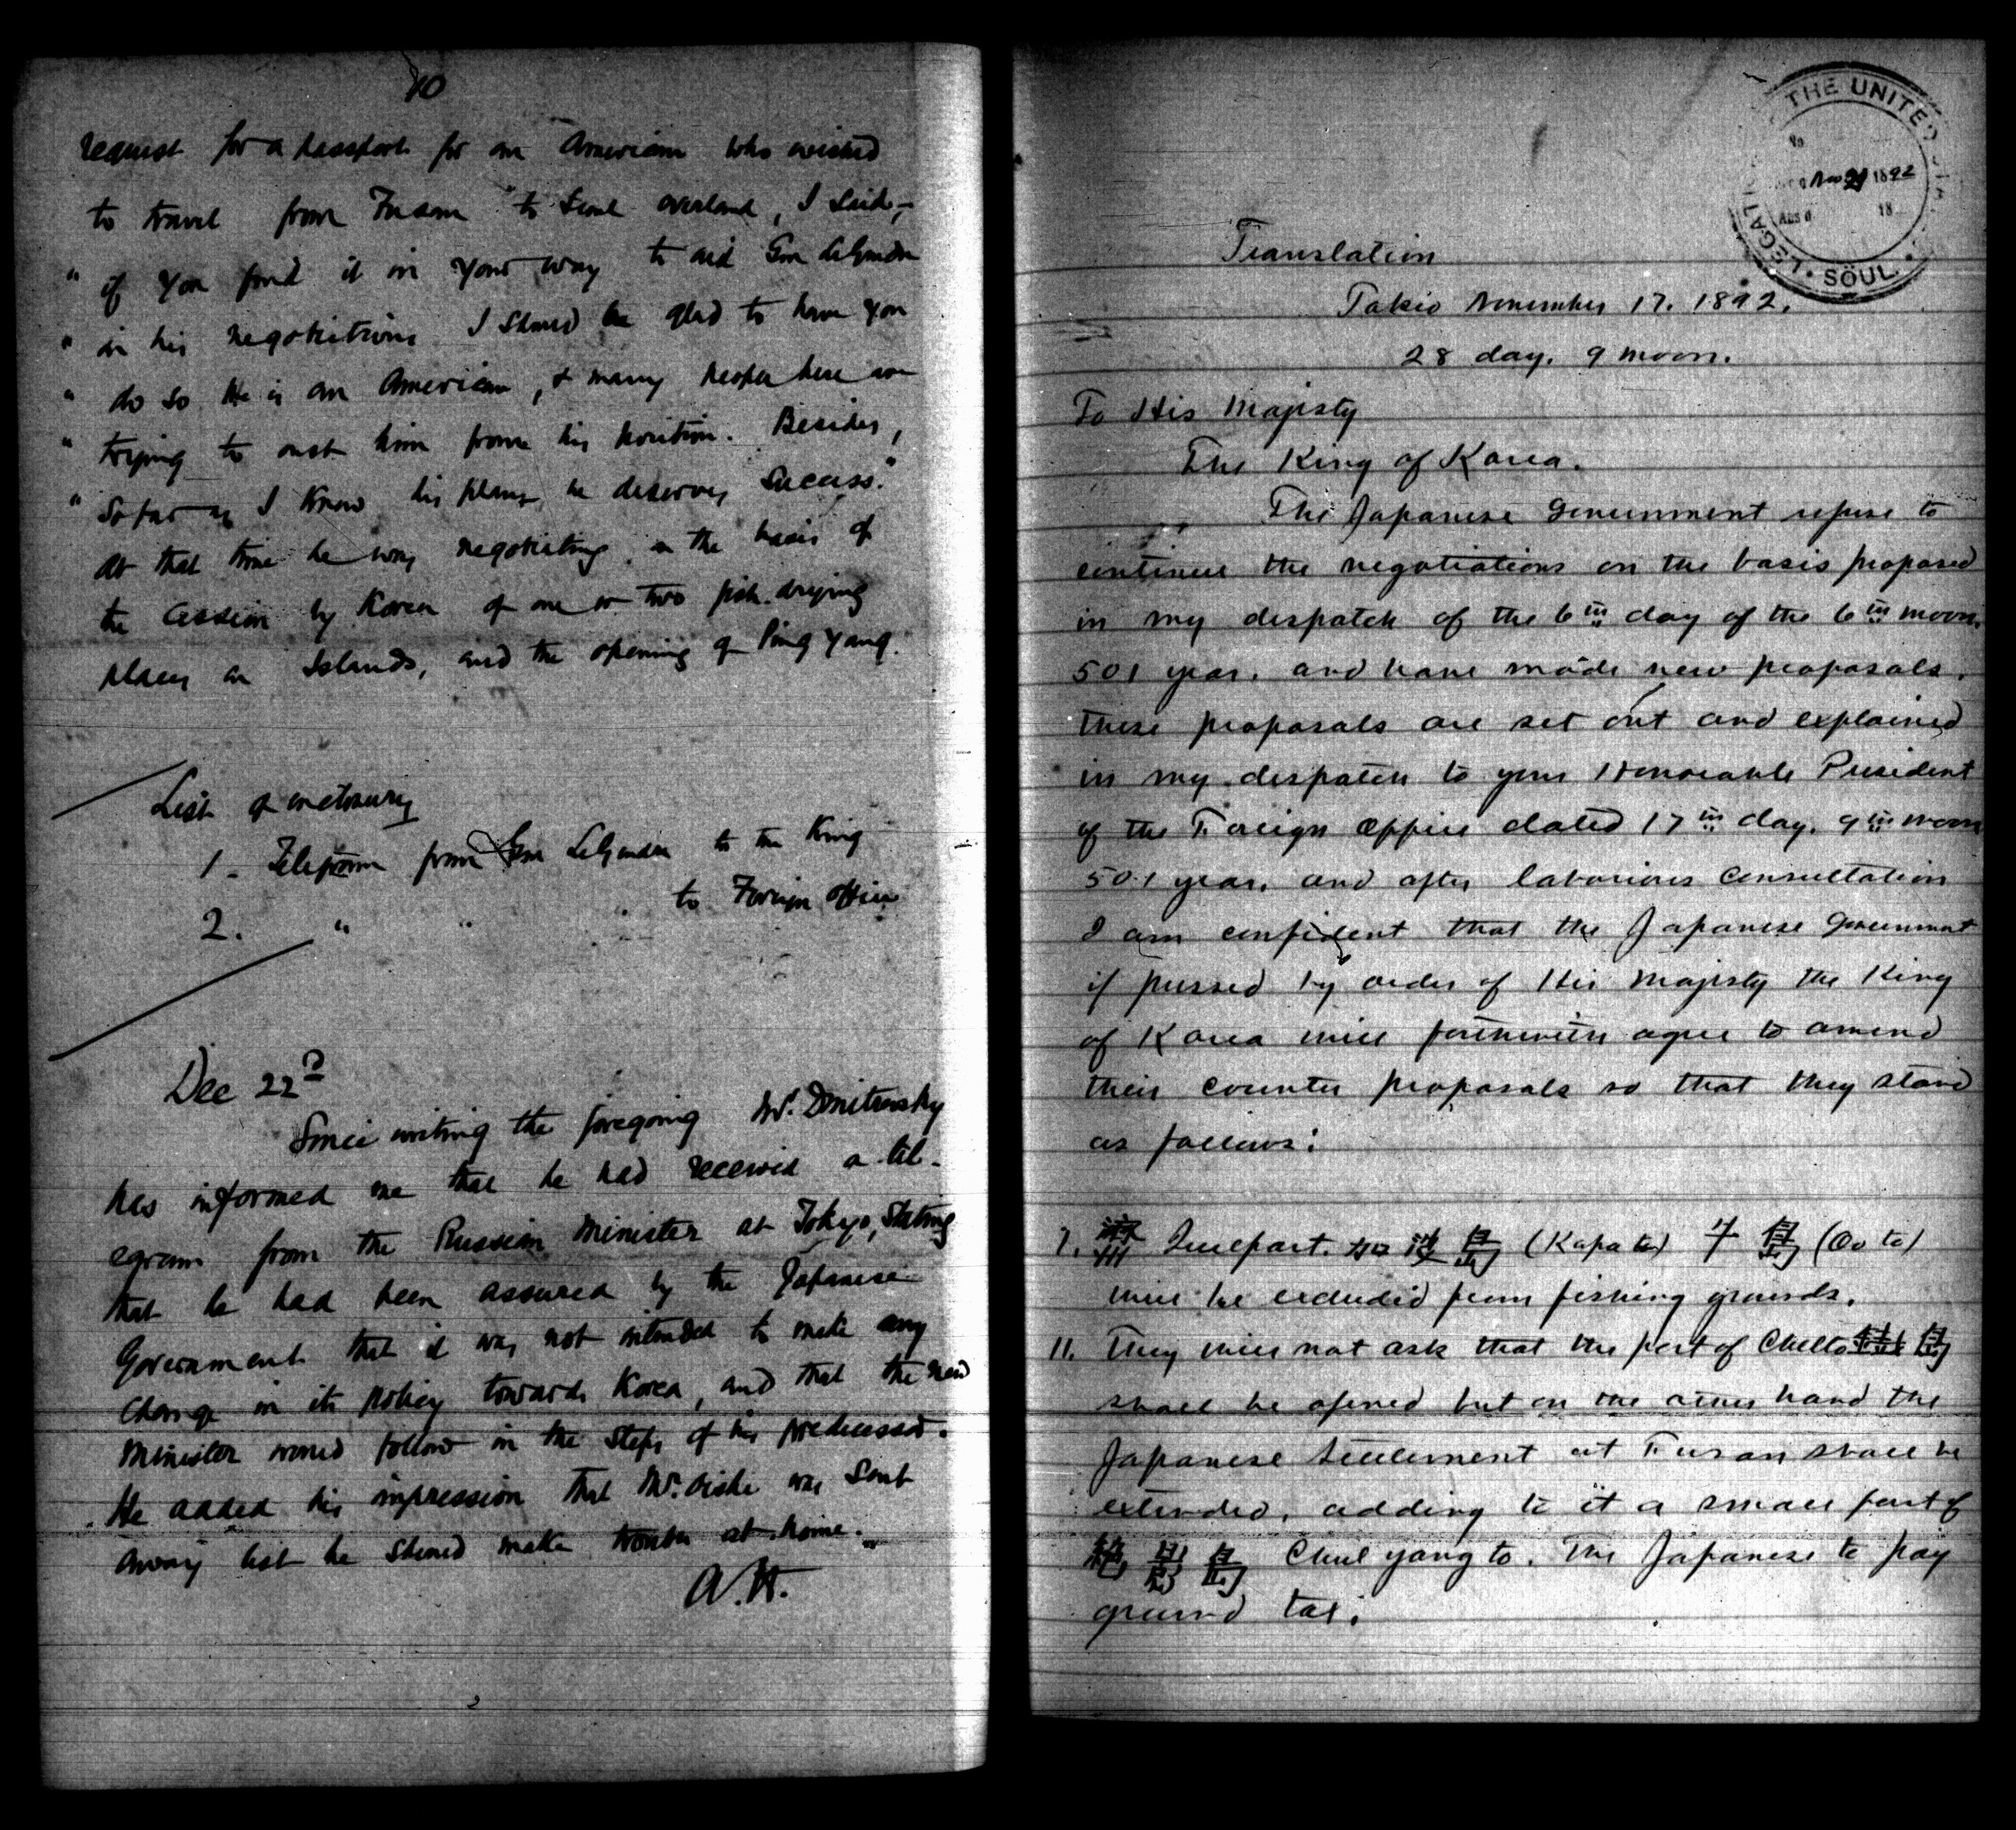 10
request for a passport for an American who wished
to travel from Fusan to Seoul overland, I said,-
" if you find it in your way to aid Gen LeGendre
" in his negotiations I should be glad to have you
" do so. He is an American, & many people here are
" trying to oust him from his position. Besides,
" So far as I know his plans, he deserves success."
At that time he was negotiating on the basis of
the cession by Korea of one or two fish drying
places on Islands, and the opening of Ping Yang.
List of enclosures
1 - Telegram from Gen LeGendre to the King
2. " " " to Foreign office
Dec 22d
Since writing the foregoing Mr. Dmitrevsky
has informed me that he had received a tel-
egram from the Russian Minister at Tokyo, stating
that he had been assured by the Japanese
Government that it was not intended to make any
change in its policy towards Korea, and that the new
Minister would follow in the steps of his predecessor.
He added his impression that Mr. Oishi was sent
away lest he should make trouble at home.
A.H.
THE UNITED
LEGAT
SÖUL
No
Nov 29 1892
Ans'd 18
Translation
Tokio November 17. 1892.
28 day. 9 moon.
To His Majesty
The King of Korea.
The Japanese Government refuse to
continue the negotiations on the basis proposed
in my despatch of the 6th day of the 6th moon.
501 year. and have made new proposals.
these proposals are set out and explained
in my despatch to your Honorable President
of the Foreign Office dated 17th day. 9th moon
501 year. and after laborious consultation
I am confident that the Japanese Government
if pressed by order of His Majesty the King
of Korea will forthwith agree to amend
their counter proposals so that they stand
as follows:
1. 濟州 Quelpart. 加波島 (Kapa to) 牛島 (Oo to)
will be excluded from fishing grounds.
11. They will not ask that the port of Chelto 島
shall be opened but on the other hand the
Japanese Settlement at Fusan shall be
extended, adding to it a small part of
絶影島 Chul yang to. The Japanese to pay
ground tax.